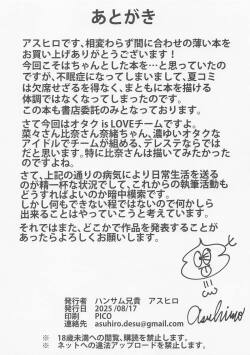 あとがき
アスヒロです、相変わらず間に合わせの薄い本を
お買い上げありがとうございます！
今回こそはちゃんとした本を…と思っていたの
ですが、不眠症になってしまいまして、夏コミ
は欠席せざるを得なく、まともに本を描ける
体調ではなくなってしまったのです。
この本も書店委託のみとなっております。
さて、今回はオタク is LOVEチームですよ。
菜々さん比奈さん奈緒ちゃん、濃ゆいオタクな
アイドルでチームが組める、デレステならでは
だと思います。特に比奈さんは描いてみたかった
のですよね。
さて、上記の通りの病気により日常生活を送る
のが精一杯な状況でして、これからの執筆活動も
どうすればよいのか暗中模索です。
しかし何もできない程ではないので何かしら
出来ることはやっていこうと考えています。
それではまた、どこかで作品を発表することが
あったらよろしくお願いします。
発行者 ハンサム兄貴 アスヒロ
発行日 2025/08/17
印刷 PICO
連絡先 asuhiro.desu@gmail.com
asuhiro
※ 18歳未満への閲覧、購読を禁止します。
※ ネットへの違法アップロードを禁止します。